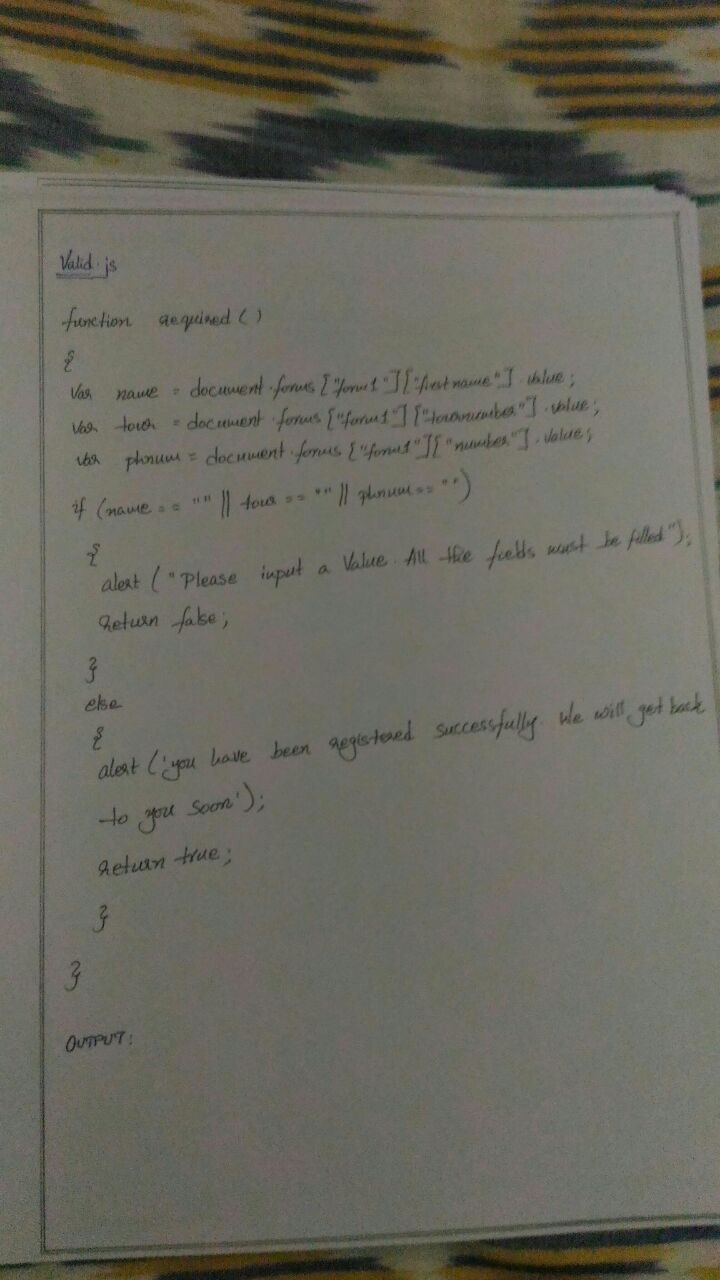 Valid.js
function required()
{
var name = document.forms ["form1"]["first name"].value;
var tour = document.forms ["form1"]["tournumber"].value;
var phnum = document.forms ["form1"]["number"].value;
if (name == "" || tour == "" || phnum == "")
{
alert ("Please input a Value. All the fields must be filled");
return false;
}
else
{
alert ('you have been registered successfully. We will get back
to you soon');
return true;
}
}
OUTPUT: